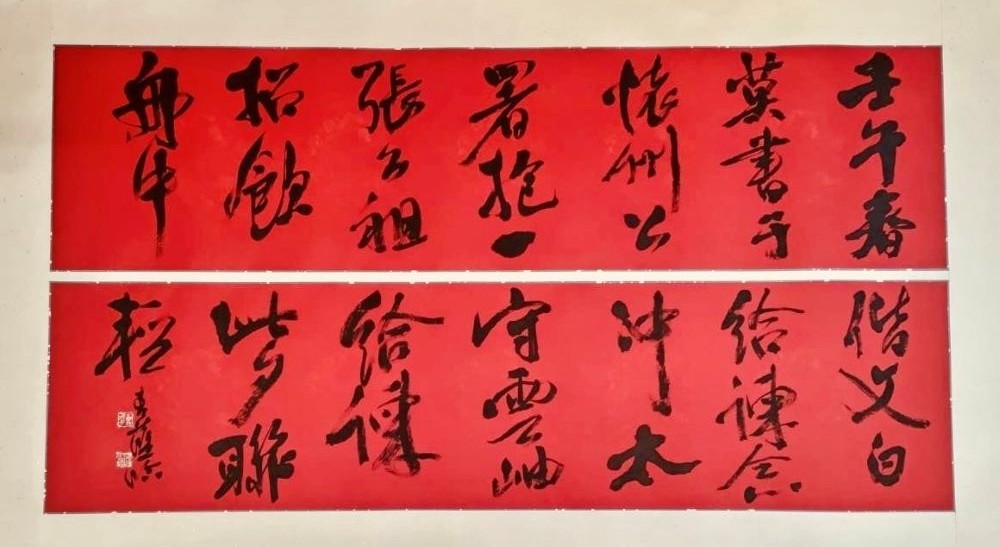 壬午春
莫書于
懷州公
署抱一
張公祖
招飲
舟中
偕文白
給諫念
沖太
守雲岫
給諫
此夕聯